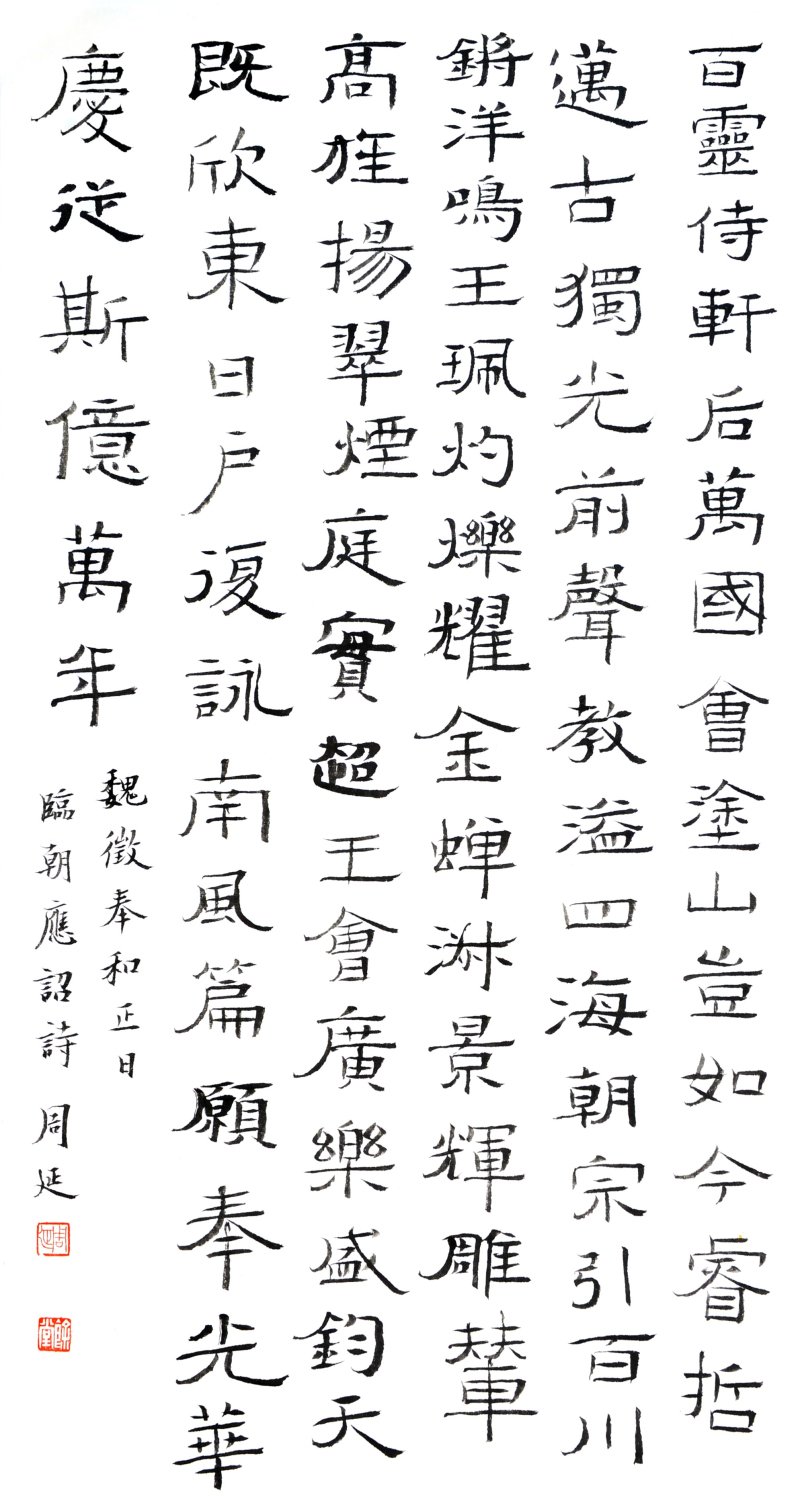 百靈侍軒后萬國會塗山豈如今睿哲
邁古獨光前聲教溢四海朝宗引百川
鏘洋鳴王珮灼爍耀金蟬淑景輝雕輦
高旌揚翠煙庭實超王會廣樂盛鈞天
既欣東日戶復詠南風篇願奉光華
慶從斯億萬年
魏徵奉和正日
臨朝應詔詩 周延